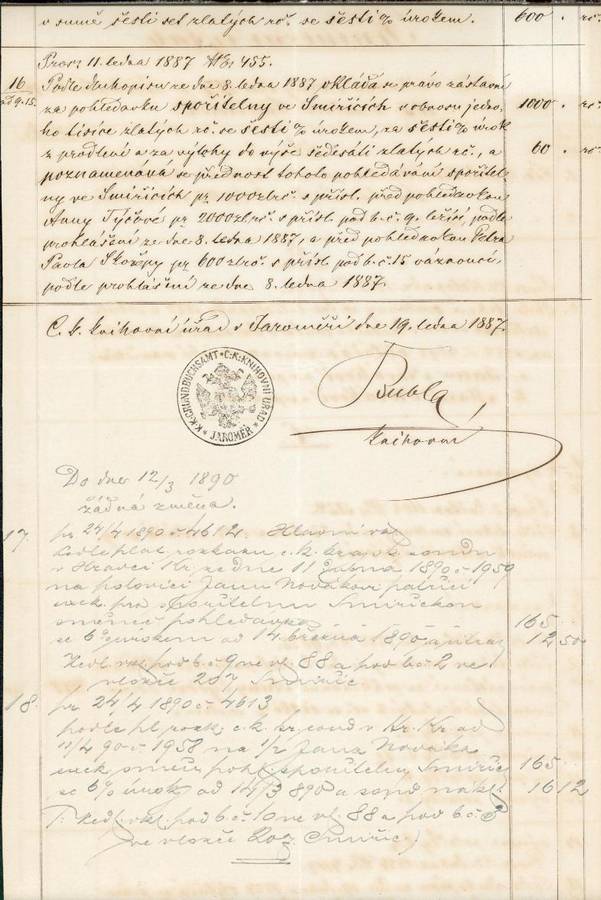 v sumě šesti set zlatých rč. se šesti % úrokem. 600 . rč.
Praes. 11. ledna 1887 čís. 455.
16 Podle dluhopisu ze dne 8. ledna 1887 vkládá se právo zástavní
ad 9.15. za pohledávku spořitelny ve Smiřicích v obnosu jedno- 1000 . rč.
ho tisíce zlatých rč. se šesti % úrokem, za šesti % úrok
z prodlení a za výlohy do výše šedesáti zlatých rč., a 60 . rč.
poznamenává se přednost tohoto pohledávání spořitel-
ny ve Smiřicích pr. 1000 zl rč. s přísl. před pohledávkou
Anny Týčové pr. 2000 zl. rč. s přísl. pod b. č. 9. ležící, podle
prohlášení ze dne 8. ledna 1887, a před pohledávkou Petra
Pavla Skořepy pr. 600 zl rč. s přísl. pod b. č. 15 váznoucí,
podle prohlášení ze dne 8. ledna 1887.
C. k. knihovní úřad v Jaroměři dne 19. ledna 1887.
K.K. GRUNDBUCHSAMT * C. K. KNIHOVNÍ ÚŘAD * JAROMĚŘ *
Bubla
knihovní
Do dnes 12/3 1890
žádná změna.
17. pr 24/4 1890 č 4612. Hlavní
Podle plat. rozkazu c. k. kraj. soudu
v Hradci Kr. ze dne 11 dubna 1890 č 1959
na polovici Janu Novákovi patřící
exek. pro spořitelnu Smiřickou
pohledávka 165
se 6% úrokem od 14. března 1890 a útrat 12 50
Vedl. vkl. pod b. č. 9 ve vl. 88 a pod b. č. 2 ve
vložce 207 Smiřic
18. pr 24/4 1890 č 4613
podle pl. rozk. c. k. kr. soud v Hr. Kr. od
11/4 90 č 1958 na 1/2 Jana Nováka
exek. pohl. spořitelny Smiřic 165
se 6% úrok. od 14/3 890 a soud nákl. 16 12
Vedl. vkl. pod b. č. 10 ve vl. 88 a pod b. č. 3
ve vložce 207 Smiřic)